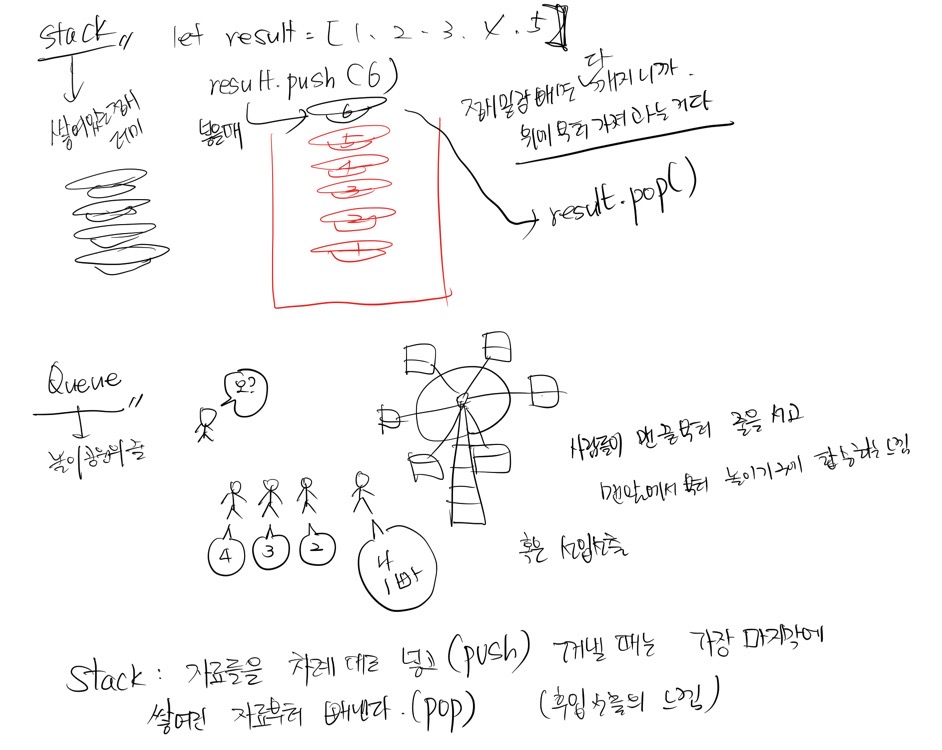 stack
let result = [1, 2, 3, 4, 5]
쌓여있는 접시
더미
result.push(6)
넣을때
6
5
4
3
2
1
다
접시 밑장 빼면 깨지니까.
위에부터 가져가는 거다
result.pop()
Queue
놀이공원의 줄
오?
4
3
2
나
1빠
사람들이 맨끝부터 줄을 서고
맨앞에서부터 놀이기구에 탑승하는 느낌
혹은 선입선출
Stack : 자료를 차례대로 넣고(push) 꺼낼 때는 가장 마지막에
쌓여진 자료부터 빼낸다.(pop) (후입선출의 느낌)